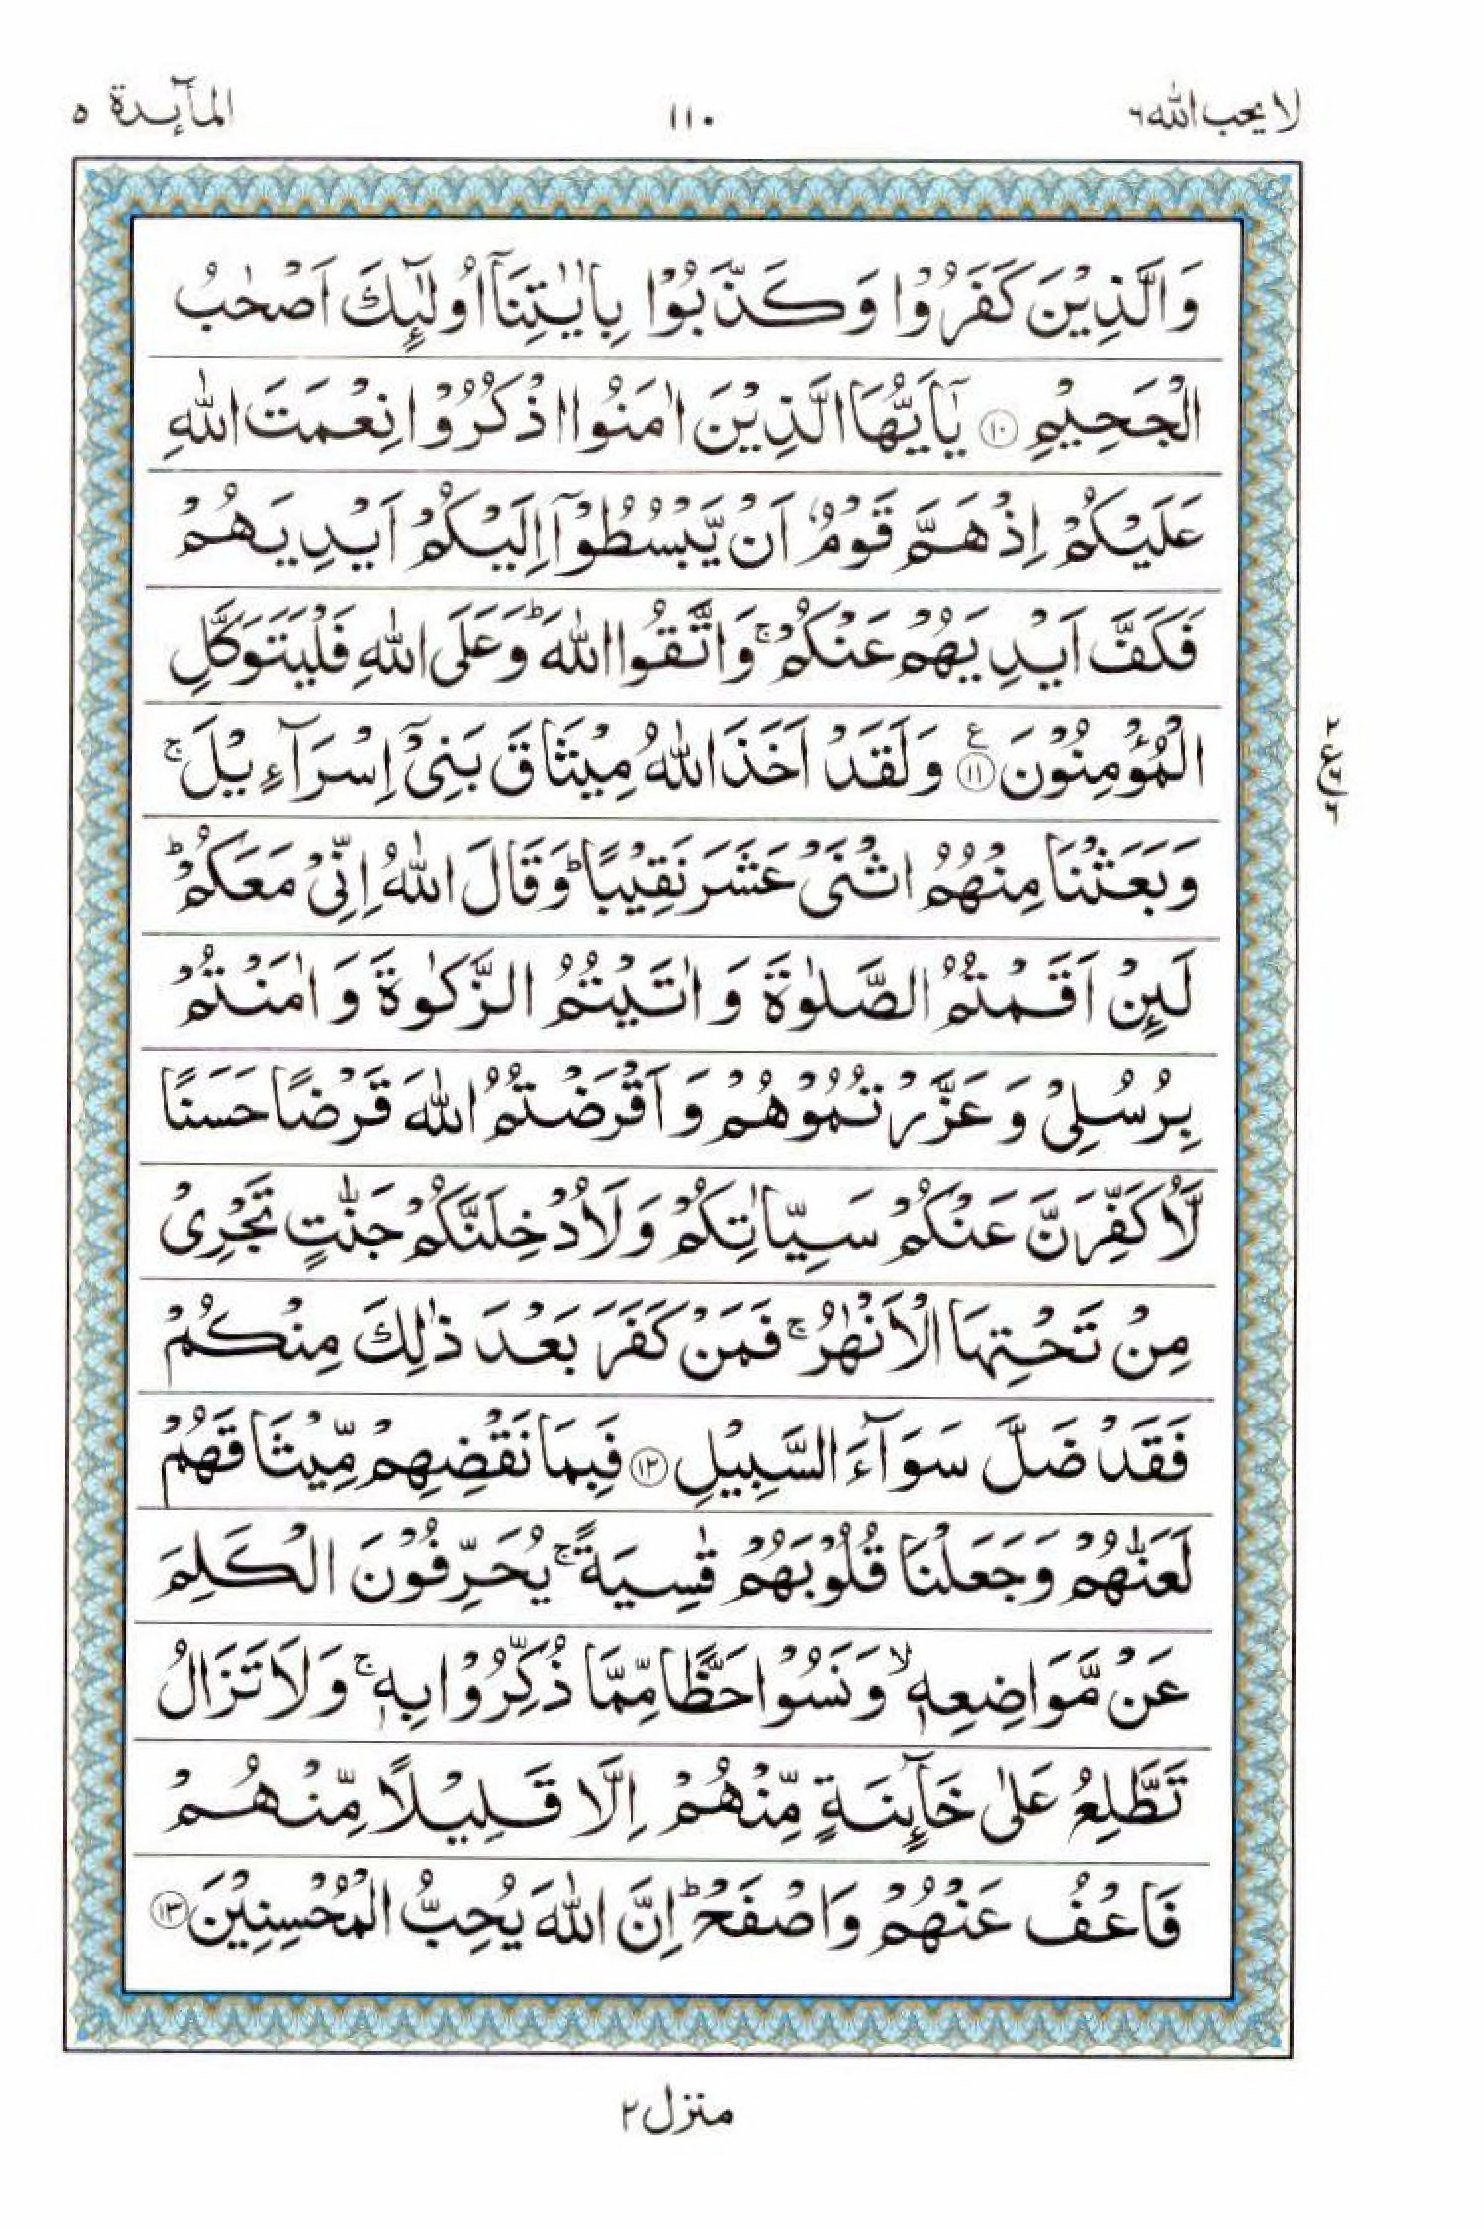 لا یحب الله ٦
١١٠
المآىِٕدة ٥
وَالَّذِیْنَ كَفَرُوْا وَكَذَّبُوْا بِاٰیٰتِنَاۤ اُولٰٓىِٕكَ اَصْحٰبُ
الْجَحِیْمِ ⑩ یٰۤاَیُّهَا الَّذِیْنَ اٰمَنُوا اذْكُرُوْا نِعْمَتَ اللّٰهِ
عَلَیْكُمْ اِذْ هَمَّ قَوْمٌ اَنْ یَّبْسُطُوْۤا اِلَیْكُمْ اَیْدِیَهُمْ
فَكَفَّ اَیْدِیَهُمْ عَنْكُمْ ۚ وَاتَّقُوا اللّٰهَ ؕ وَعَلَی اللّٰهِ فَلْیَتَوَكَّلِ
الْمُؤْمِنُوْنَ ⑪ ع وَلَقَدْ اَخَذَ اللّٰهُ مِیْثَاقَ بَنِیْۤ اِسْرَآءِیْلَ ۚ
ع
٢
٦
٢
وَبَعَثْنَا مِنْهُمُ اثْنَیْ عَشَرَ نَقِیْبًا ؕ وَقَالَ اللّٰهُ اِنِّیْ مَعَكُمْ ؕ
لَىِٕنْ اَقَمْتُمُ الصَّلٰوةَ وَاٰتَیْتُمُ الزَّكٰوةَ وَاٰمَنْتُمْ
بِرُسُلِیْ وَعَزَّرْتُمُوْهُمْ وَاَقْرَضْتُمُ اللّٰهَ قَرْضًا حَسَنًا
لَّاُكَفِّرَنَّ عَنْكُمْ سَیِّاٰتِكُمْ وَلَاُدْخِلَنَّكُمْ جَنّٰتٍ تَجْرِیْ
مِنْ تَحْتِهَا الْاَنْهٰرُ ۚ فَمَنْ كَفَرَ بَعْدَ ذٰلِكَ مِنْكُمْ
فَقَدْ ضَلَّ سَوَآءَ السَّبِیْلِ ⑫ فَبِمَا نَقْضِهِمْ مِّیْثَاقَهُمْ
لَعَنّٰهُمْ وَجَعَلْنَا قُلُوْبَهُمْ قٰسِیَةً ۚ یُحَرِّفُوْنَ الْكَلِمَ
عَنْ مَّوَاضِعِهٖ ۙ وَنَسُوْا حَظًّا مِّمَّا ذُكِّرُوْا بِهٖ ۚ وَلَا تَزَالُ
تَطَّلِعُ عَلٰی خَآىِٕنَةٍ مِّنْهُمْ اِلَّا قَلِیْلًا مِّنْهُمْ
فَاعْفُ عَنْهُمْ وَاصْفَحْ ؕ اِنَّ اللّٰهَ یُحِبُّ الْمُحْسِنِیْنَ ⑬
منزل ٢